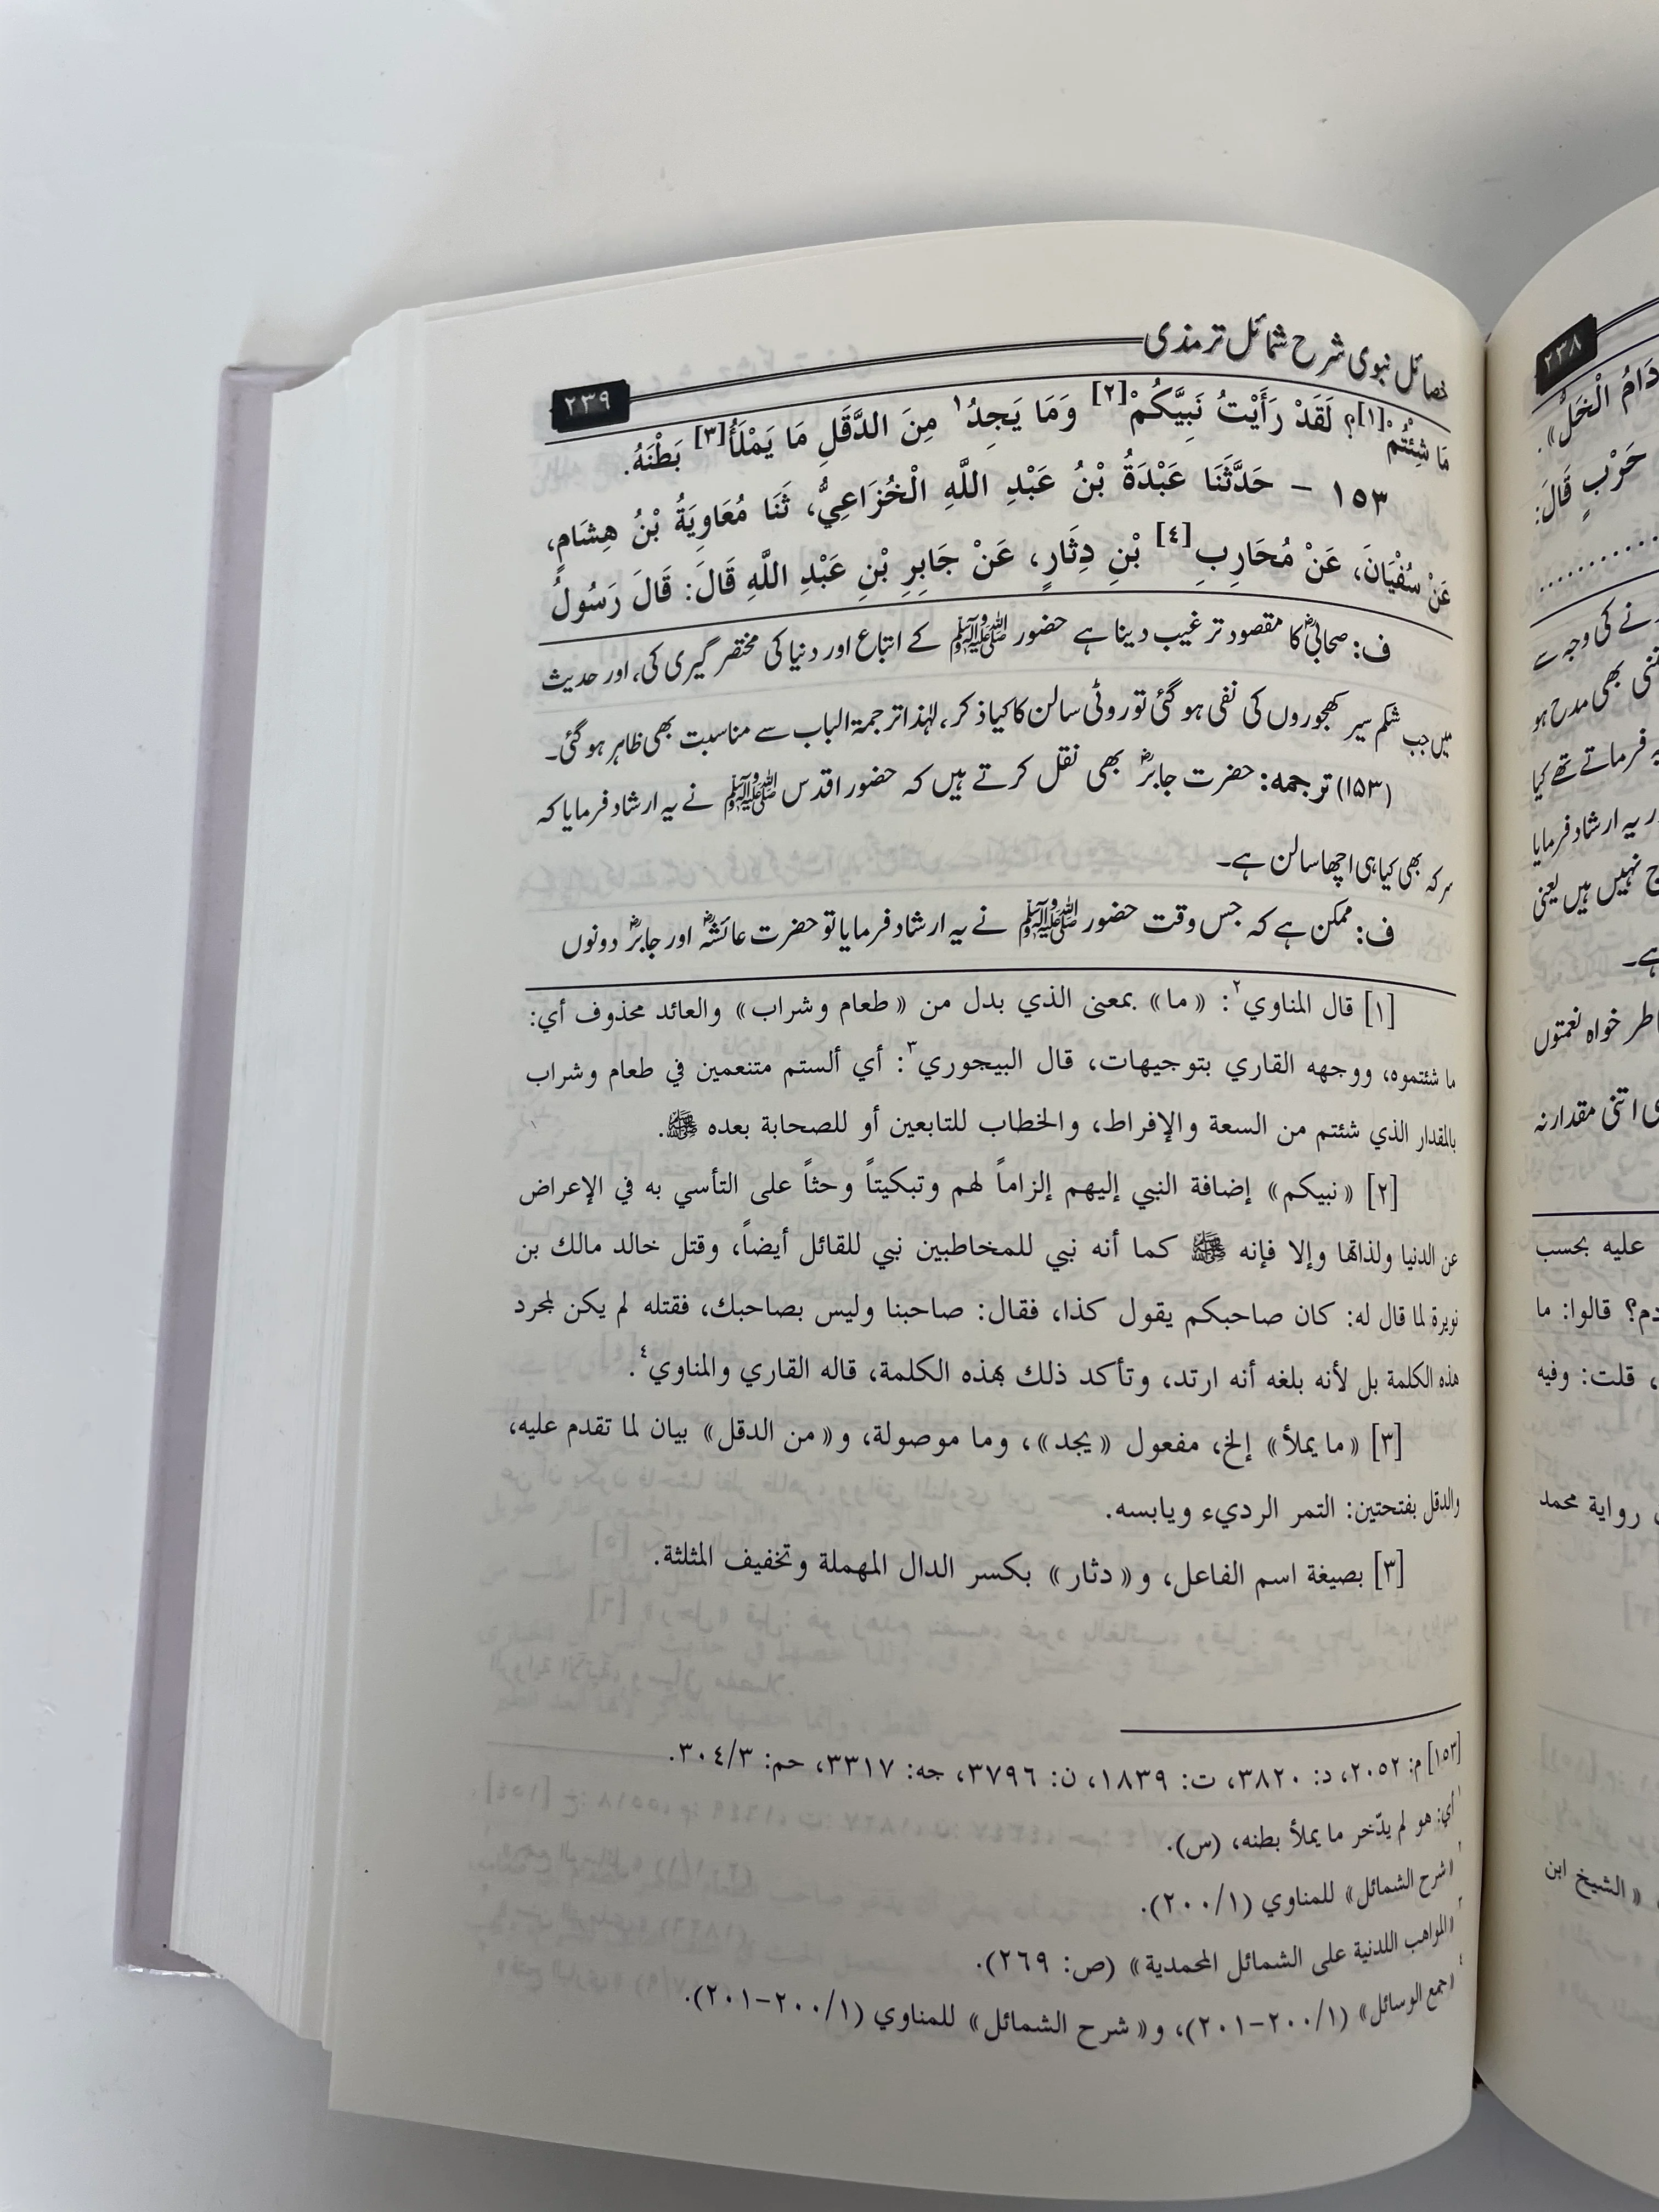 خصائل نبوی شرح شمائل ترمذی
٢٣٩
مَا شِئْتُمْ[١]؟ لَقَدْ رَأَيْتُ نَبِيَّكُمْ[٢] وَمَا يَجِدُ١ مِنَ الدَّقَلِ مَا يَمْلَأُ[٣] بَطْنَهُ.
١٥٣ – حَدَّثَنَا عَبْدَةُ بْنُ عَبْدِ اللَّهِ الْخُزَاعِيُّ، ثَنَا مُعَاوِيَةُ بْنُ هِشَامٍ،
عَنْ سُفْيَانَ، عَنْ مُحَارِبِ[٤] بْنِ دِثَارٍ، عَنْ جَابِرِ بْنِ عَبْدِ اللَّهِ قَالَ: قَالَ رَسُولُ
ف: صحابیؓ کا مقصود ترغیب دینا ہے حضور ﷺ کے اتباع اور دنیا کی مختصر گیری کی، اور حدیث
میں جب شکم سیر کھجوروں کی نفی ہوگئی تو روٹی سالن کا کیا ذکر، لہٰذا ترجمۃ الباب سے مناسبت بھی ظاہر ہوگئی۔
(۱۵۳) ترجمہ: حضرت جابرؓ بھی نقل کرتے ہیں کہ حضور اقدس ﷺ نے یہ ارشاد فرمایا کہ
سرکہ بھی کیا ہی اچھا سالن ہے۔
ف: ممکن ہے کہ جس وقت حضور ﷺ نے یہ ارشاد فرمایا تو حضرت عائشہؓ اور جابرؓ دونوں
[١] قال المناوي٢: «ما» بمعنى الذي بدل من «طعام وشراب» والعائد محذوف أي:
ما شئتموه، ووجهه القاري بتوجيهات، قال البيجوري٣: أي ألستم متنعمين في طعام وشراب
بالمقدار الذي شئتم من السعة والإفراط، والخطاب للتابعين أو للصحابة بعده ﷺ.
[٢] «نبيكم» إضافة النبي إليهم إلزاماً لهم وتبكيتاً وحثاً على التأسي به في الإعراض
عن الدنيا ولذاتها وإلا فإنه ﷺ كما أنه نبي للمخاطبين نبي للقائل أيضاً، وقتل خالد مالك بن
نويرة لما قال له: كان صاحبكم يقول كذا، فقال: صاحبنا وليس بصاحبك، فقتله لم يكن لمجرد
هذه الكلمة بل لأنه بلغه أنه ارتد، وتأكد ذلك بهذه الكلمة، قاله القاري والمناوي٤.
[٣] «ما يملأ» إلخ، مفعول «يجد»، وما موصولة، و«من الدقل» بيان لما تقدم عليه،
والدقل بفتحتين: التمر الرديء ويابسه.
[٣] بصيغة اسم الفاعل، و«دثار» بكسر الدال المهملة وتخفيف المثلثة.
[١٥٣] م: ٢٠٥٢، د: ٣٨٢٠، ت: ١٨٣٩، ن: ٣٧٩٦، جه: ٣٣١٧، حم: ٣٠٤/٣.
١ أي: هو لم يدّخر ما يملأ بطنه، (س).
٢ «شرح الشمائل» للمناوي (٢٠٠/١).
٣ «المواهب اللدنية على الشمائل المحمدية» (ص: ٢٦٩).
٤ «جمع الوسائل» (٢٠٠/١-٢٠١)، و«شرح الشمائل» للمناوي (٢٠٠/١-٢٠١).
٢٣٨
دَامُ الْخَلُّ».
حَرْبٍ قَالَ:
نے کی وجہ سے
بھی مدح ہو
یہ فرماتے تھے کیا
یہ ارشاد فرمایا
نہیں ہیں یعنی
ہے۔
خواہ نعمتوں
اتنی مقدار نہ
عليه بحسب
قالوا: ما
، قلت: وفيه
رواية محمد
، «الشيخ ابن